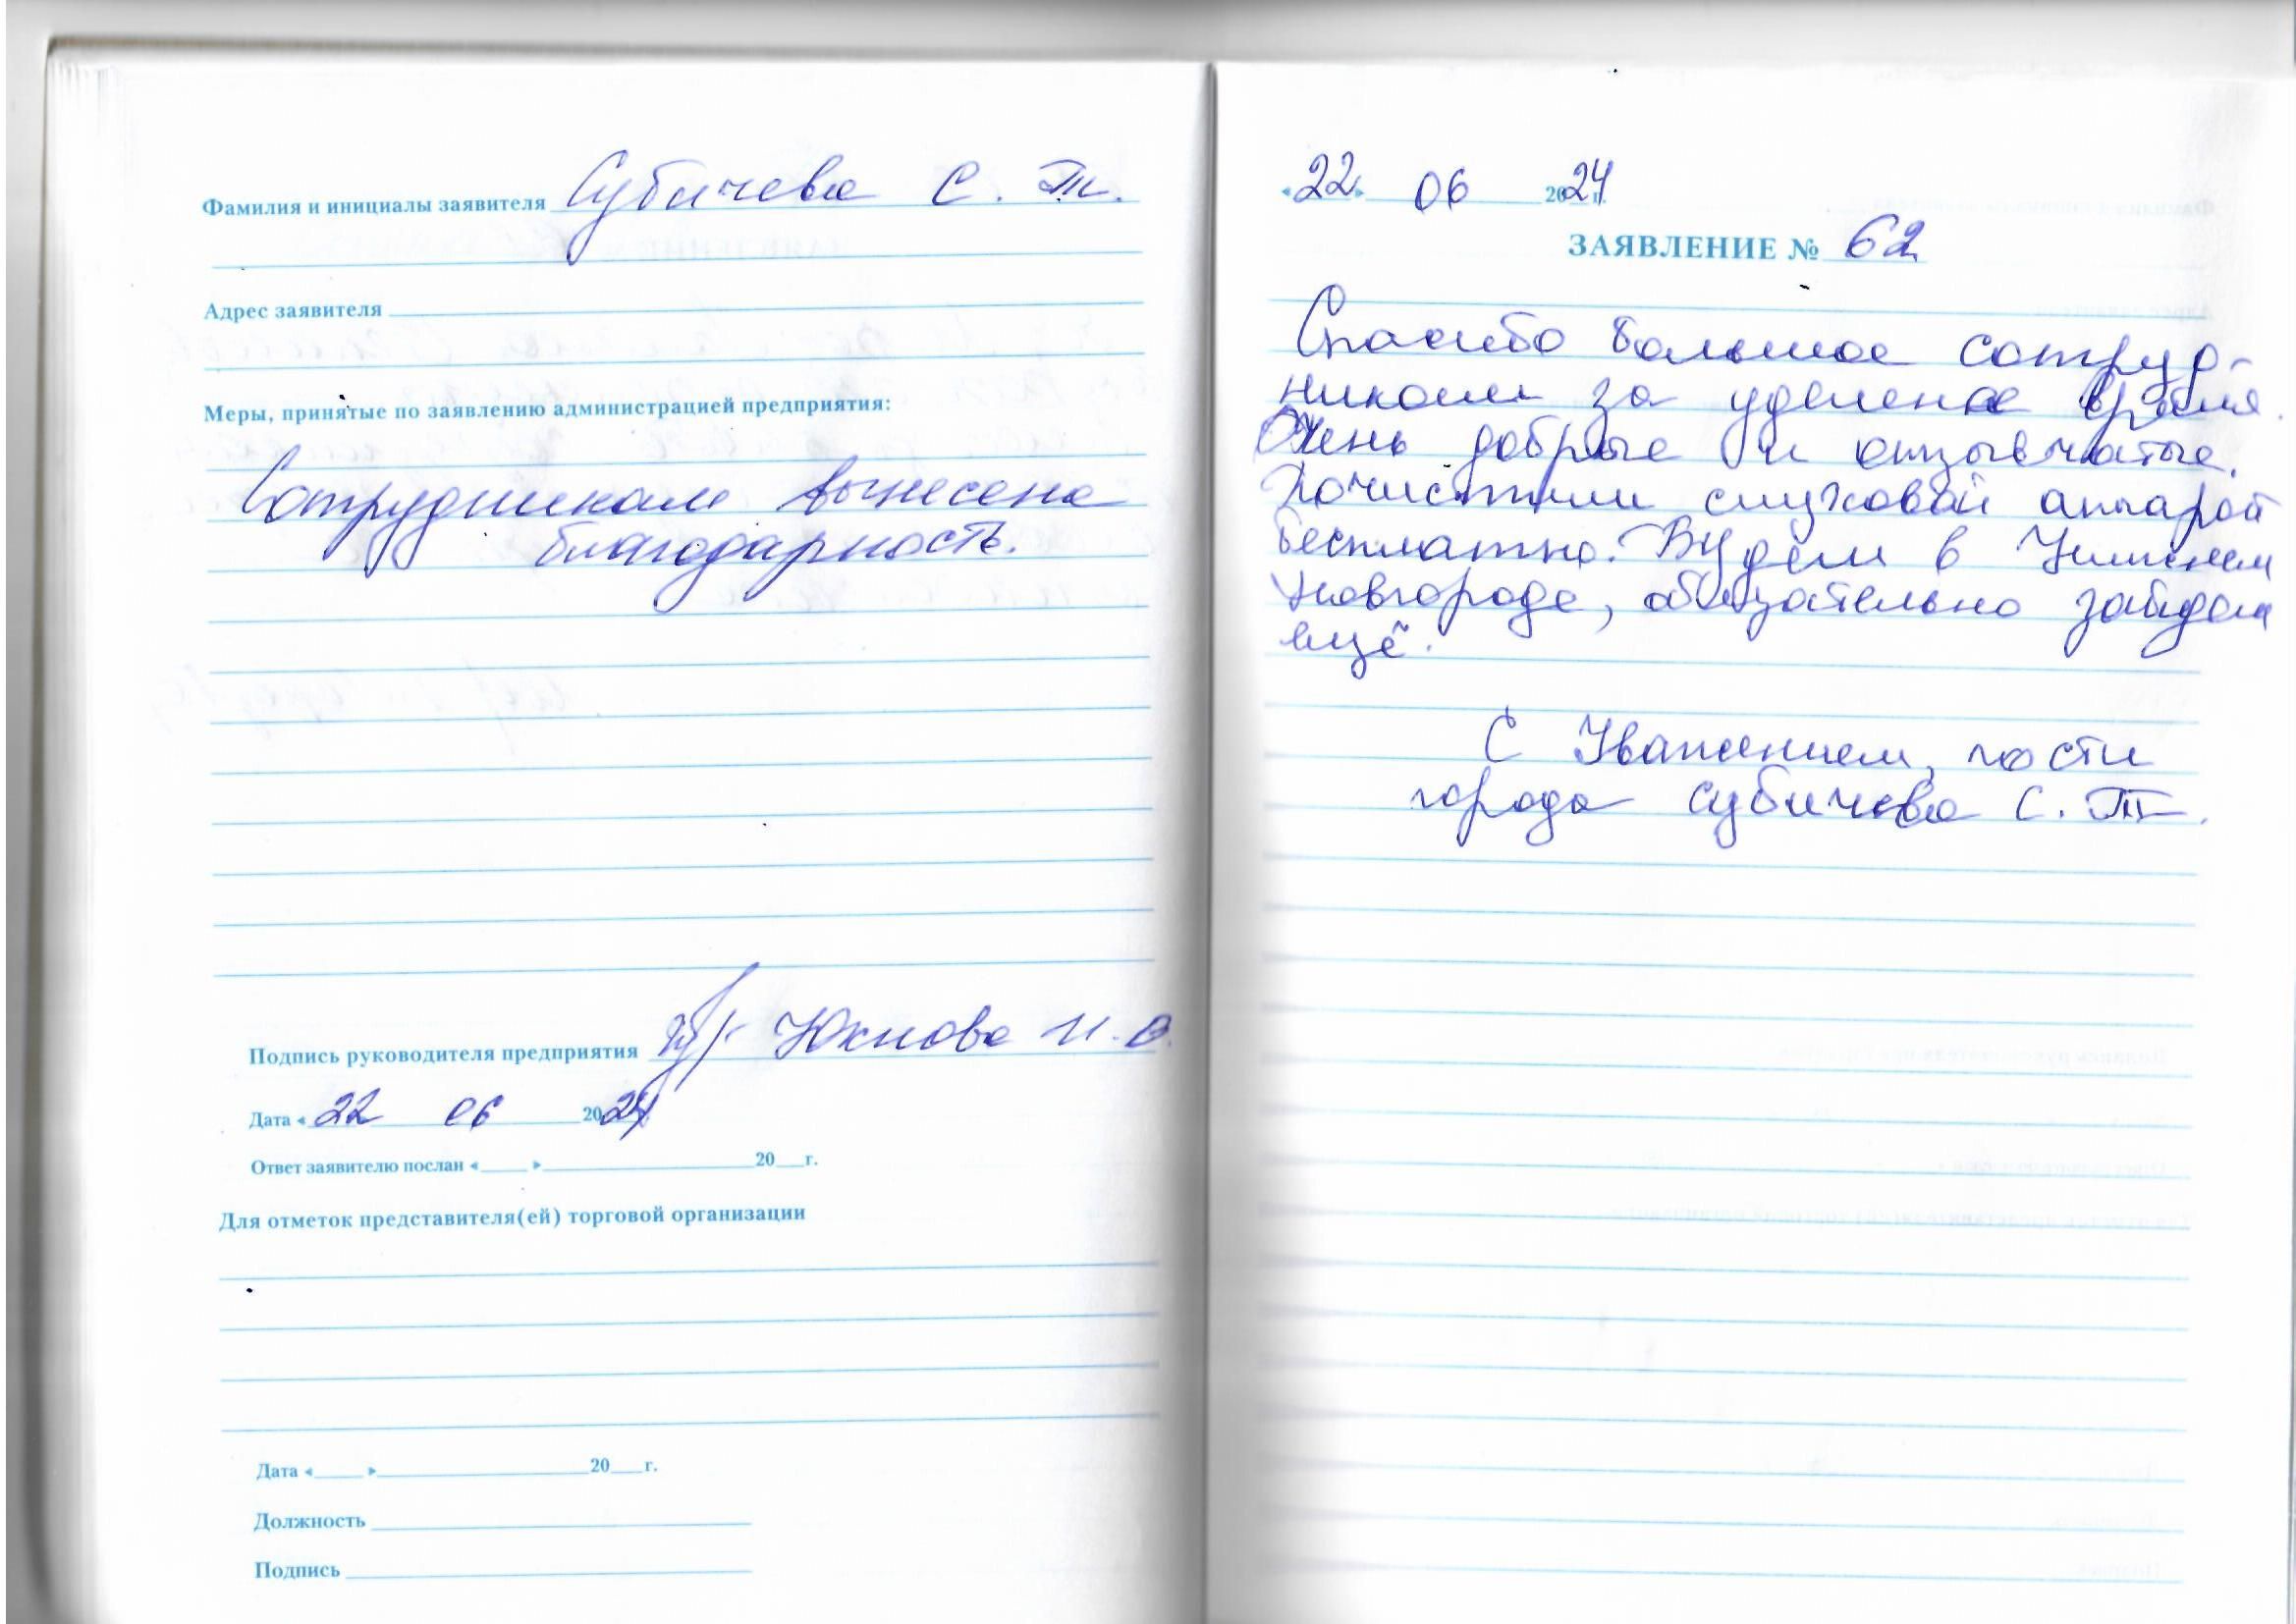 Фамилия и инициалы заявителя Субичева С. Т.
Адрес заявителя
Меры, принятые по заявлению администрацией предприятия:
Сотрудникам вынесена
благодарность.
Подпись руководителя предприятия Юкнова И. В.
Дата « 22 06 2024
Ответ заявителю послан «____ » ____ 20__г.
Для отметок представителя(ей) торговой организации
Дата «____ » ____ 20__г.
Должность
Подпись
«22» 06 2024 г.
ЗАЯВЛЕНИЕ № 62
Спасибо большое сотруд-
никам за уделеное время.
Очень добрые и отзывчатые.
Почистили слуховой апарат
бесплатно. Будем в Нижнем
Новгороде, обязательно зайдем
ещё.
С Уважением, гости
города Субичева С. Т.